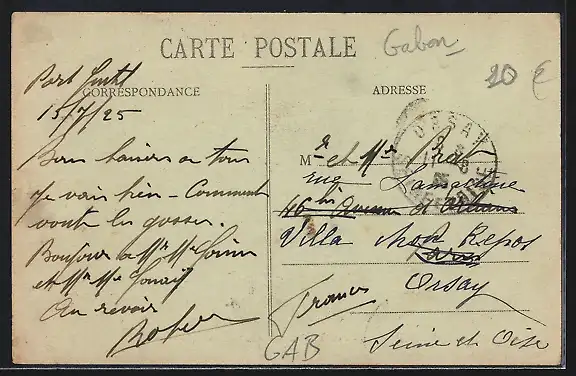 CARTE POSTALE
Gabon
20 €
CORRESPONDANCE
ADRESSE
Port Gentil
15/7/25
Bons baisers a tous
Je vais bien - Comment
vont les gosses.
Bonjour a Mr Mme
et Mr Mme
Au revoir
Roger
ORSAY
Mr et Mme
rue Lamartine
46 bis Avenue d'Orléans
Villa Mon Repos
Orsay
France
Seine et Oise
GAB